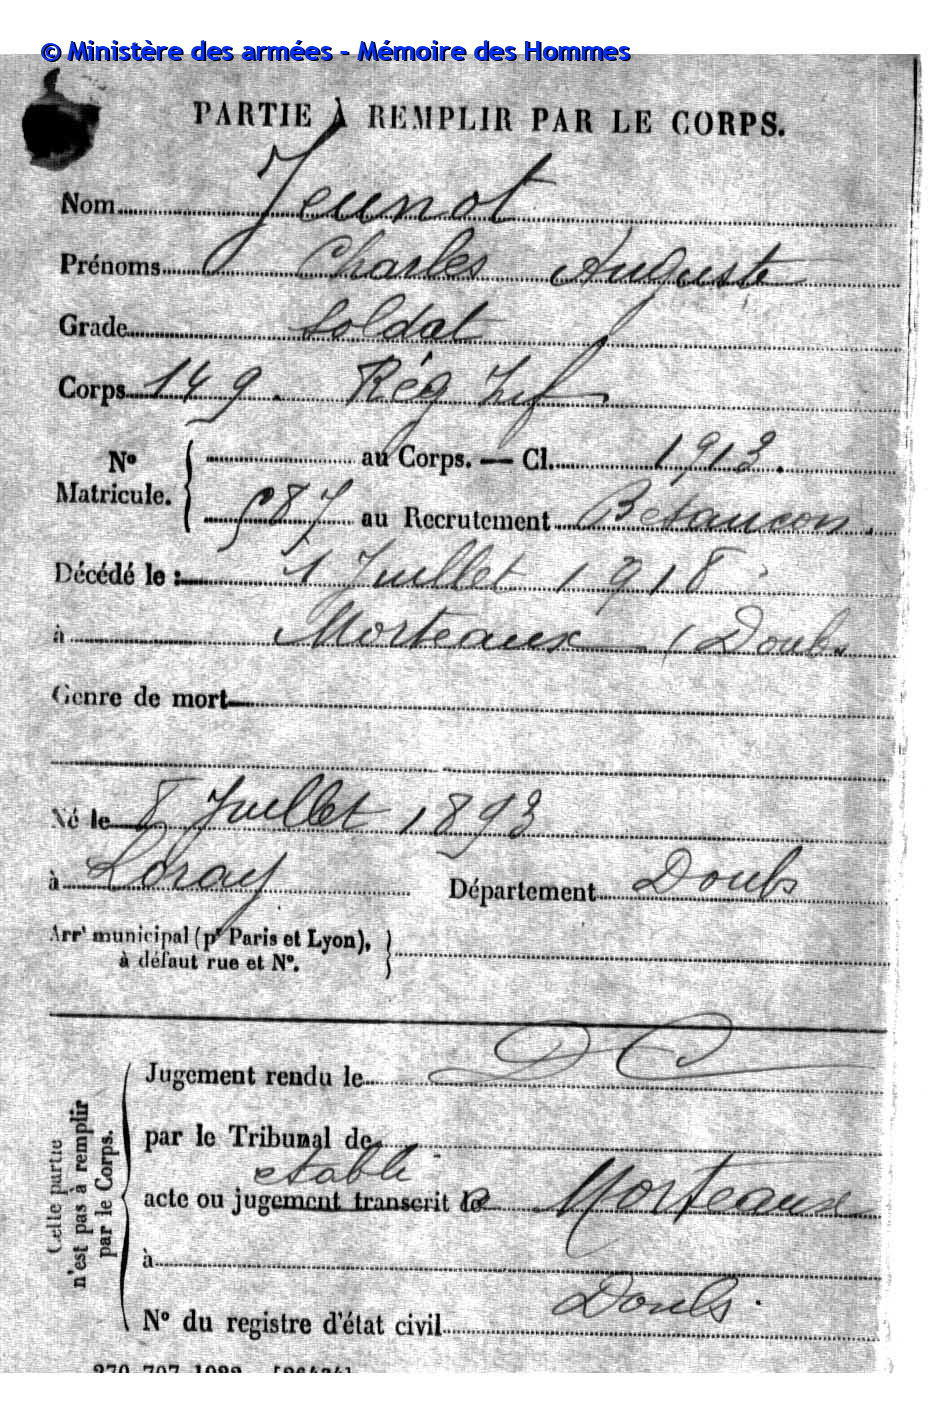 © Ministère des armées - Mémoire des Hommes
PARTIE À REMPLIR PAR LE CORPS.
Nom Jeunot
Prénoms Charles Auguste
Grade Soldat
Corps 149. Rég Inf
N° Matricule. { au Corps. — Cl. 1913.
587 au Recrutement Besançon.
Décédé le : 1 Juillet 1918
à Morteaux (Doubs
Genre de mort
Né le 8 Juillet 1893
à Loray Département Doubs
Arrt municipal (pr Paris et Lyon), à défaut rue et N°.
Cette partie n'est pas à remplir par le Corps.
Jugement rendu le
par le Tribunal de
établi
acte ou jugement transcrit le Morteaux
à
Doubs.
N° du registre d'état civil